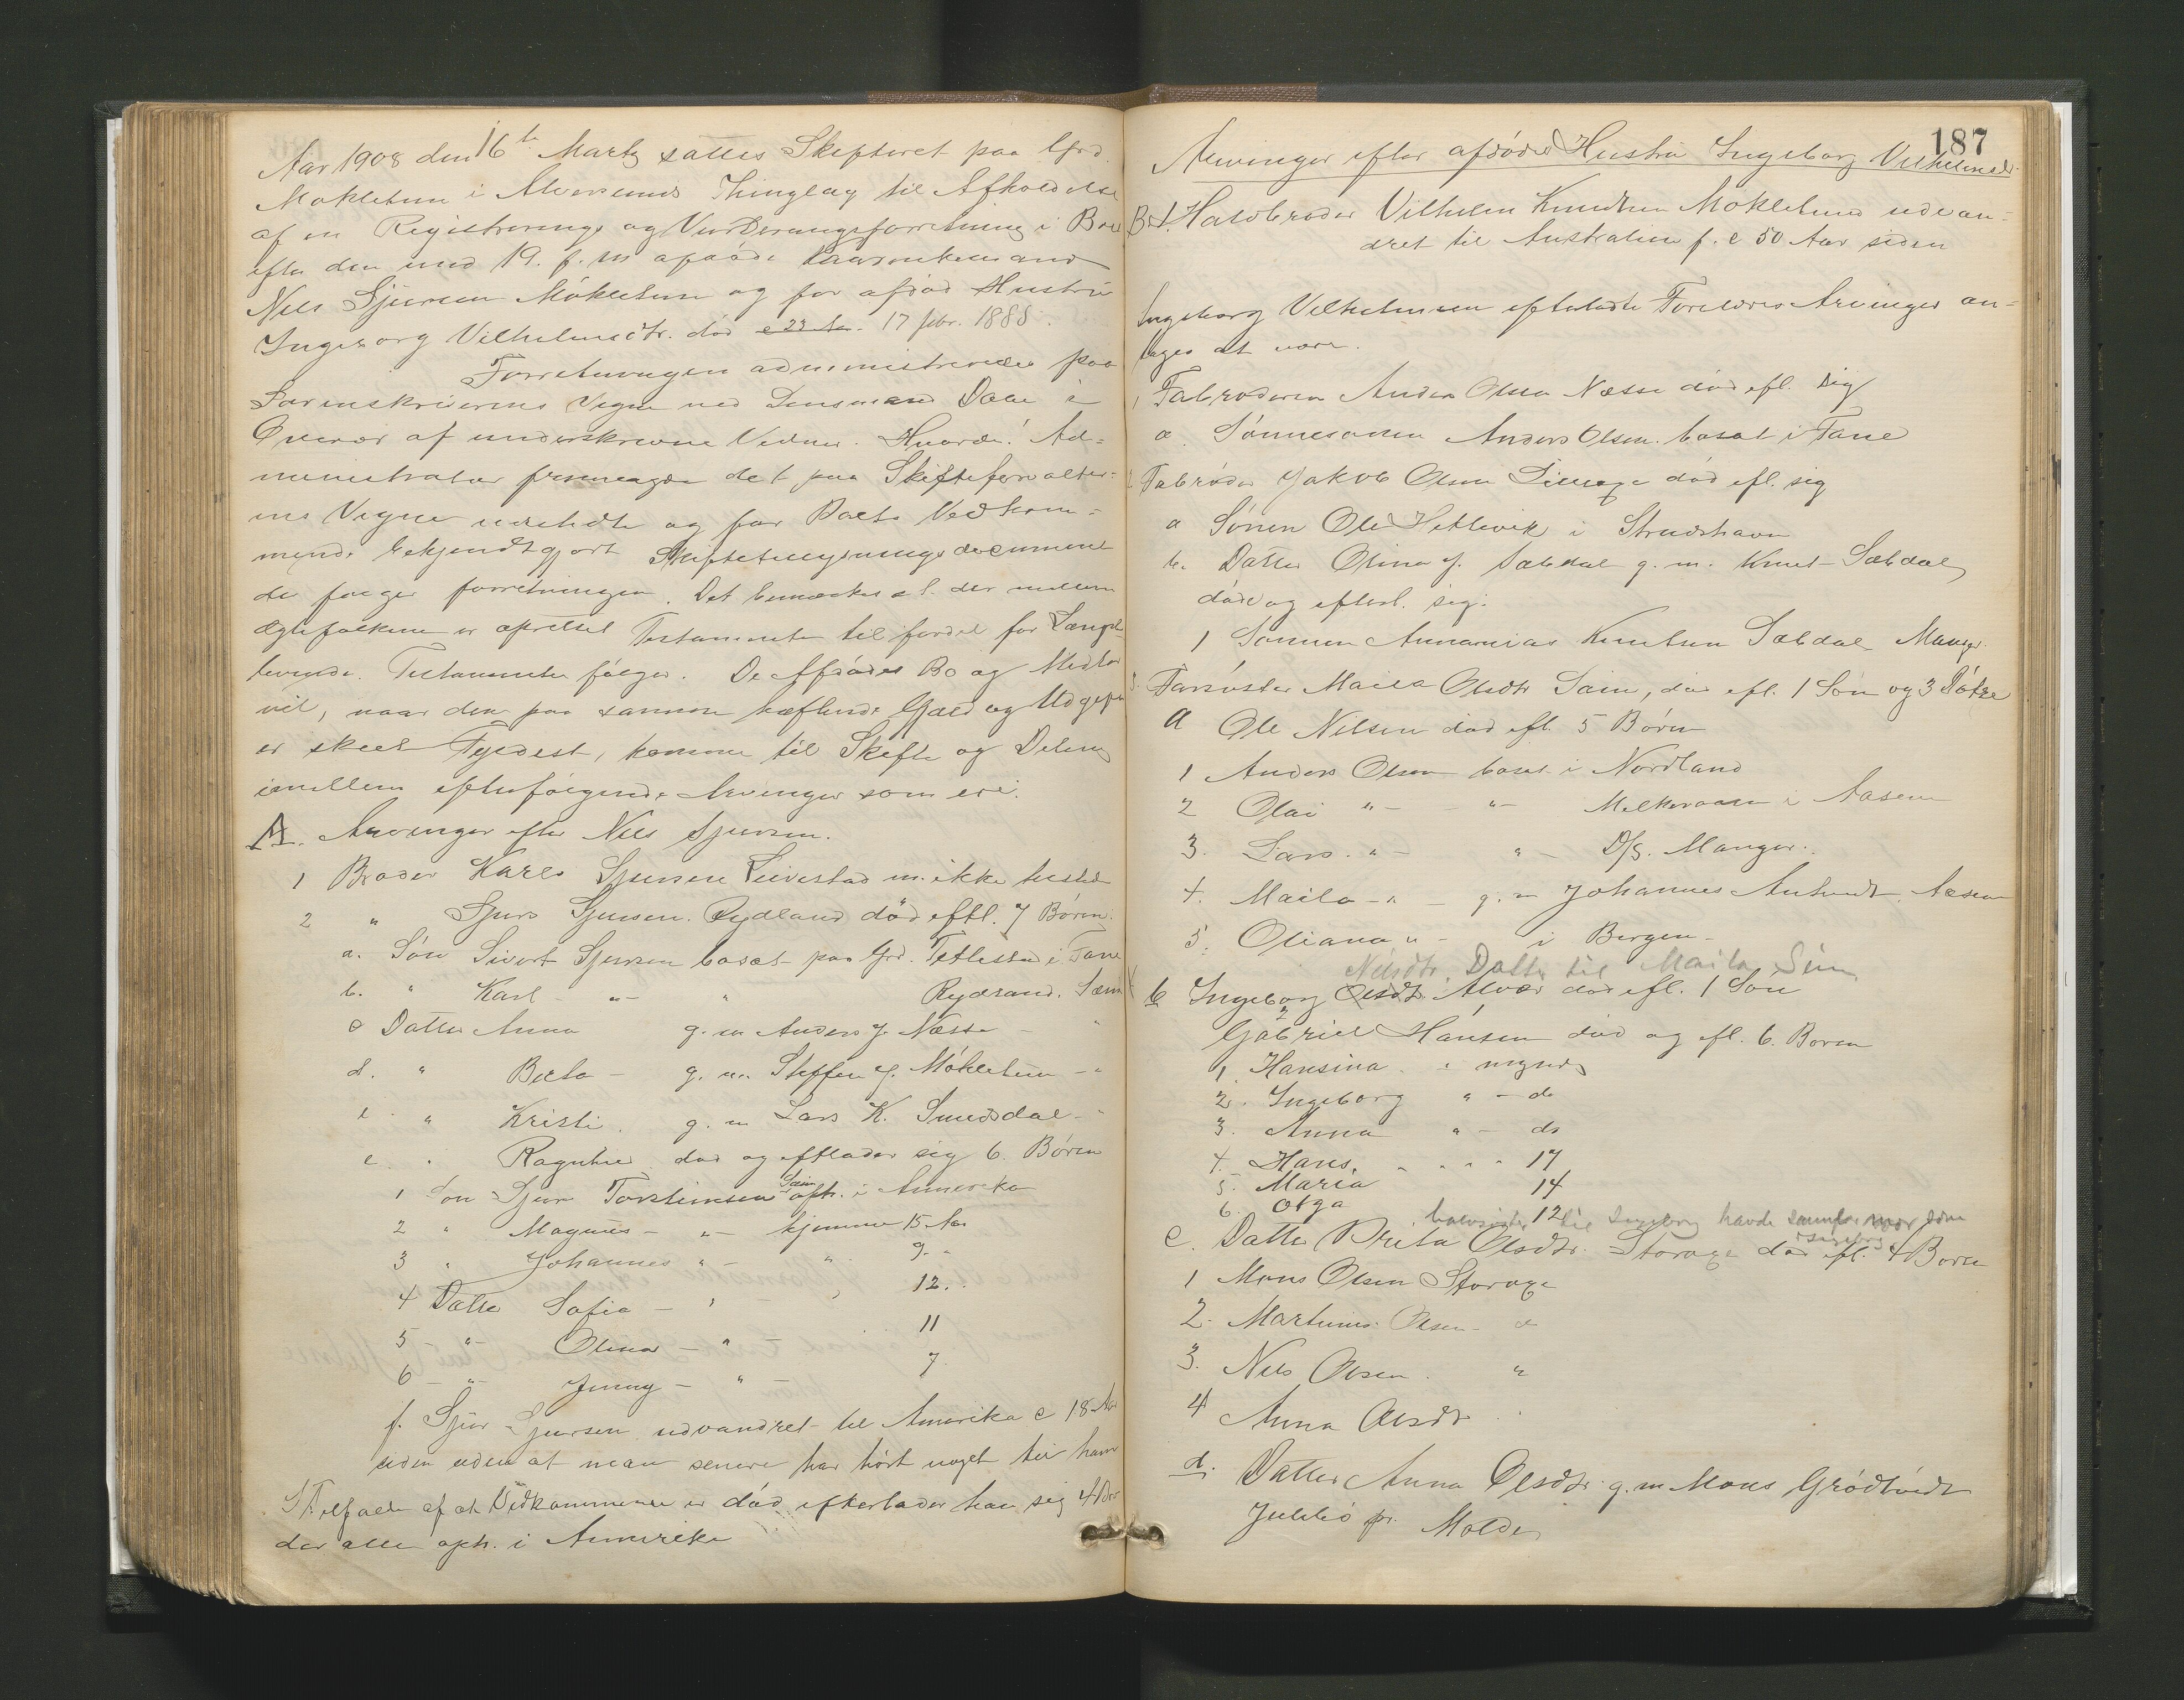 Aar 1908 den 16de Marts sattes Skifteret paa Grd.
Mökletun i Alversunds Thinglag til Afholdelse
af en Registrerings og Vurderingsforretning i Boet
efter den under 19. f. m. afdöde Kaarenkemand
Nils Sjursen Mökletun og før afdöd Hustru
Ingeborg Vilhelmsdtr. död c 23 Aar. 17 febr. 1888.
Forretningen administreredes paa
Sorenskriverens Vegne ved Lensmand Dale i
Overvær af underskrevne Vidner. Hvorda! Ad-
ministrator fremlagde det paa Skifteforvalter-
ens Vegne udstedte og for Boets Vedkom-
mende bekjendtgjort Skiftetilsynings document
der følger forretningen. Det bemærkes at der mellem
Ægtefolkene er oprettet Testamente til fordel for Længst-
levende. Testamentet følger. De Afdödes Bo og Midler
vil, naar den paa samme hæftende Gjæld og Udgifter
er skeet Fyldest, komme til Skifte og Deling
imellem efterfølgende Arvinger som ere:
A. Arvinger efter Nils Sjursen.
1 Broder Karl Sjursen Leirestad m. ikke tilstede
2 " Sjur Sjursen Rydland död eftl. 7 Börn:
a. Sön Sivert Sjursen bosat paa Grd. Tetlestad i Fane
b. " Karl - " - " Rydland. Sæim
c Datter Anna g. m Anders J. Næsse - "
d. " Berta - g. m. Steffen J. Mökletun - "
e. " Kristi. g. m Lars K. Smedsdal - "
e. " Ragnhild död og efterlader sig 6 Börn
1 Sön Sjur Torsteinsen Sæim oph. i Amerika
2 " Magnus - " - hjemme 15 Aar
3 " Johannes " - " 9. "
4 Datter Sofia - " - " 12.
5 - " - Olina - " - 11
6 - " - Jenny - " - 7
f. Sjur Sjursen udvandret til Amerika c 18 Aar
siden uden at man senere har hört noget til ham
I Tilfælde af at Vedkommende er död efterlader han sig 4 Börn
der alle oph. i Amerika
187
Arvinger efter afdöde Hustru Ingeborg Vilhelmsdr.
B. 1. Halvbroder Vilhelm Knudsen Mökletund udvan-
dret til Australien f. c 50 Aar siden
Ingeborg Vilhelmsen efterladte Forældres Arvinger an-
tages at være.
1 Fabroderen Anders Olsen Næsse död efl. sig
a. Sönnesönnen Anders Olsen bosat i Fane
2 Fabroder Jakob Olsen död efl. sig
a Sönen Ole Hetlevik i Strudshavn
b. Datter Olina J. Sæbdal g. m. Knut Sæbdal
död og efterl. sig:
1 Sönnen Annanias Knutsen Sæbdal Manger
3. Farsöster Maila Olsdtr Sæim, död efl. 1 Sön og 3 Dötre
a Ole Nilsen död efl. 5 Börn
1 Anders Olsen bosat i Nordland
2 Olai " - - " - Melkeraaen i Aasene
3. Lars. " - " - D/S. Manger.
4. Maila - " - g. m Johannes Aasene
5. Oliana " - i Bergen -
Nilsdtr. Datter til Maila Seim
b Ingeborg Olsdtr Alver död efl. 1 Sön
Gabriel Hansen död og efl. 6. Börn
1. Hansina. " myndg
2. Ingeborg " - do
3. Anna " - do
4. Hans. " " " " 17
5. Maria 14
6. Olga 12
halvsöster til Ingeborg havde samme mor som Ingeborg
c. Datter Brita Olsdtr. Storoxe död efl. 4 Börn
1 Mons Olsen Storoxe
2. Martinus Olsen - "
3. Nils Olsen. "
4 Anna Olsdtr "
d. Datter Anna Olsdtr g. m Mons Grödtveidt
Julebö pr. Molde